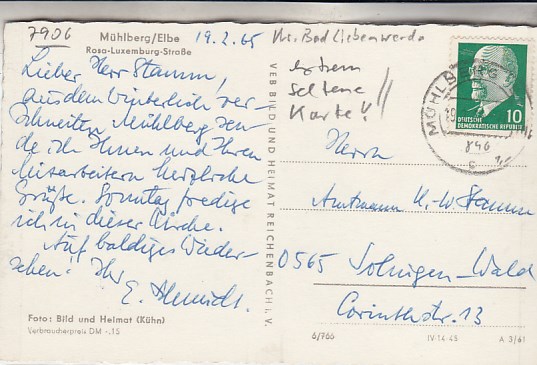 7906
Mühlberg/Elbe
Rosa-Luxemburg-Straße
19.2.65
Kr. Bad Liebenwerda
extrem
seltene
Karte!!
Lieber Herr Stamm,
aus dem winterlich ver-
schneiten Mühlberg sen-
de ich Ihnen und Ihren
Mitarbeitern herzliche
Grüße. Sonntag predige
ich in dieser Kirche.
Auf baldiges Wieder-
sehen! Ihr
E.
Foto: Bild und Heimat (Kühn)
Verbraucherpreis DM -.15
VEB BILD UND HEIMAT REICHENBACH i. V.
MÜHLBERG
10
DEUTSCHE
DEMOKRATISCHE REPUBLIK
846
c
Herrn
Amtmann K.-W. Stamm
0565 Solingen-Wald
Corinthstr. 13
6/766
IV-14-45
A 3/61